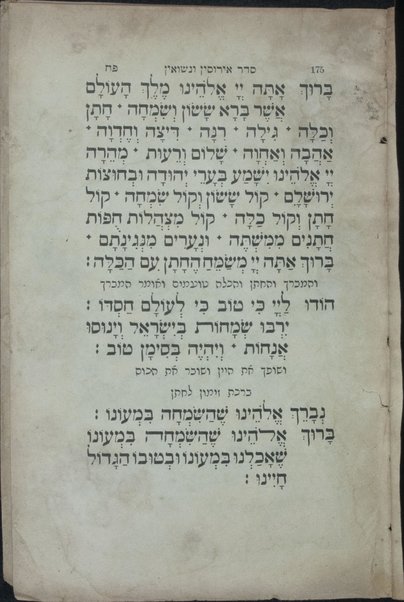 175 סדר אירוסין ונשואין פח
בָּרוּךְ אַתָּה יְיָ אֱלֹהֵינוּ מֶלֶךְ הָעוֹלָם
אֲשֶׁר בָּרָא שָׂשׂוֹן וְשִׂמְחָה · חָתָן
וְכַלָּה · גִּילָה · רִנָּה · דִּיצָה וְחֶדְוָה ·
אַהֲבָה וְאַחֲוָה · שָׁלוֹם וְרֵעוּת · מְהֵרָה
יְיָ אֱלֹהֵינוּ יִשָּׁמַע בְּעָרֵי יְהוּדָה וּבְחוּצוֹת
יְרוּשָׁלָםִ · קוֹל שָׂשׂוֹן וְקוֹל שִׂמְחָה · קוֹל
חָתָן וְקוֹל כַּלָּה · קוֹל מִצְהֲלוֹת חֻפּוֹת
חֲתָנִים מִמִּשְׁתֶּה · וּנְעָרִים מִנְּגִינָתָם ·
בָּרוּךְ אַתָּה יְיָ מְשַׂמֵּחַ הֶחָתָן עִם הַכַּלָּה:
והמברך והחתן והכלה טועמים ואומר המברך
הוֹדוּ לַיְיָ כִּי טוֹב כִּי לְעוֹלָם חַסְדּוֹ:
יִרְבּוּ שְׂמָחוֹת בְּיִשְׂרָאֵל וְיָנוּסוּ
אֲנָחוֹת · וְיִהְיֶה בְּסִימָן טוֹב:
ושופך את היין ושובר את הכוס
ברכת זימון לחתן
נְבָרֵךְ אֱלֹהֵינוּ שֶׁהַשִּׂמְחָה בִּמְעוֹנוֹ:
בָּרוּךְ אֱלֹהֵינוּ שֶׁהַשִּׂמְחָה בִּמְעוֹנוֹ
שֶׁאָכַלְנוּ בִּמְעוֹנוֹ וּבְטוּבוֹ הַגָּדוֹל
חָיִינוּ: